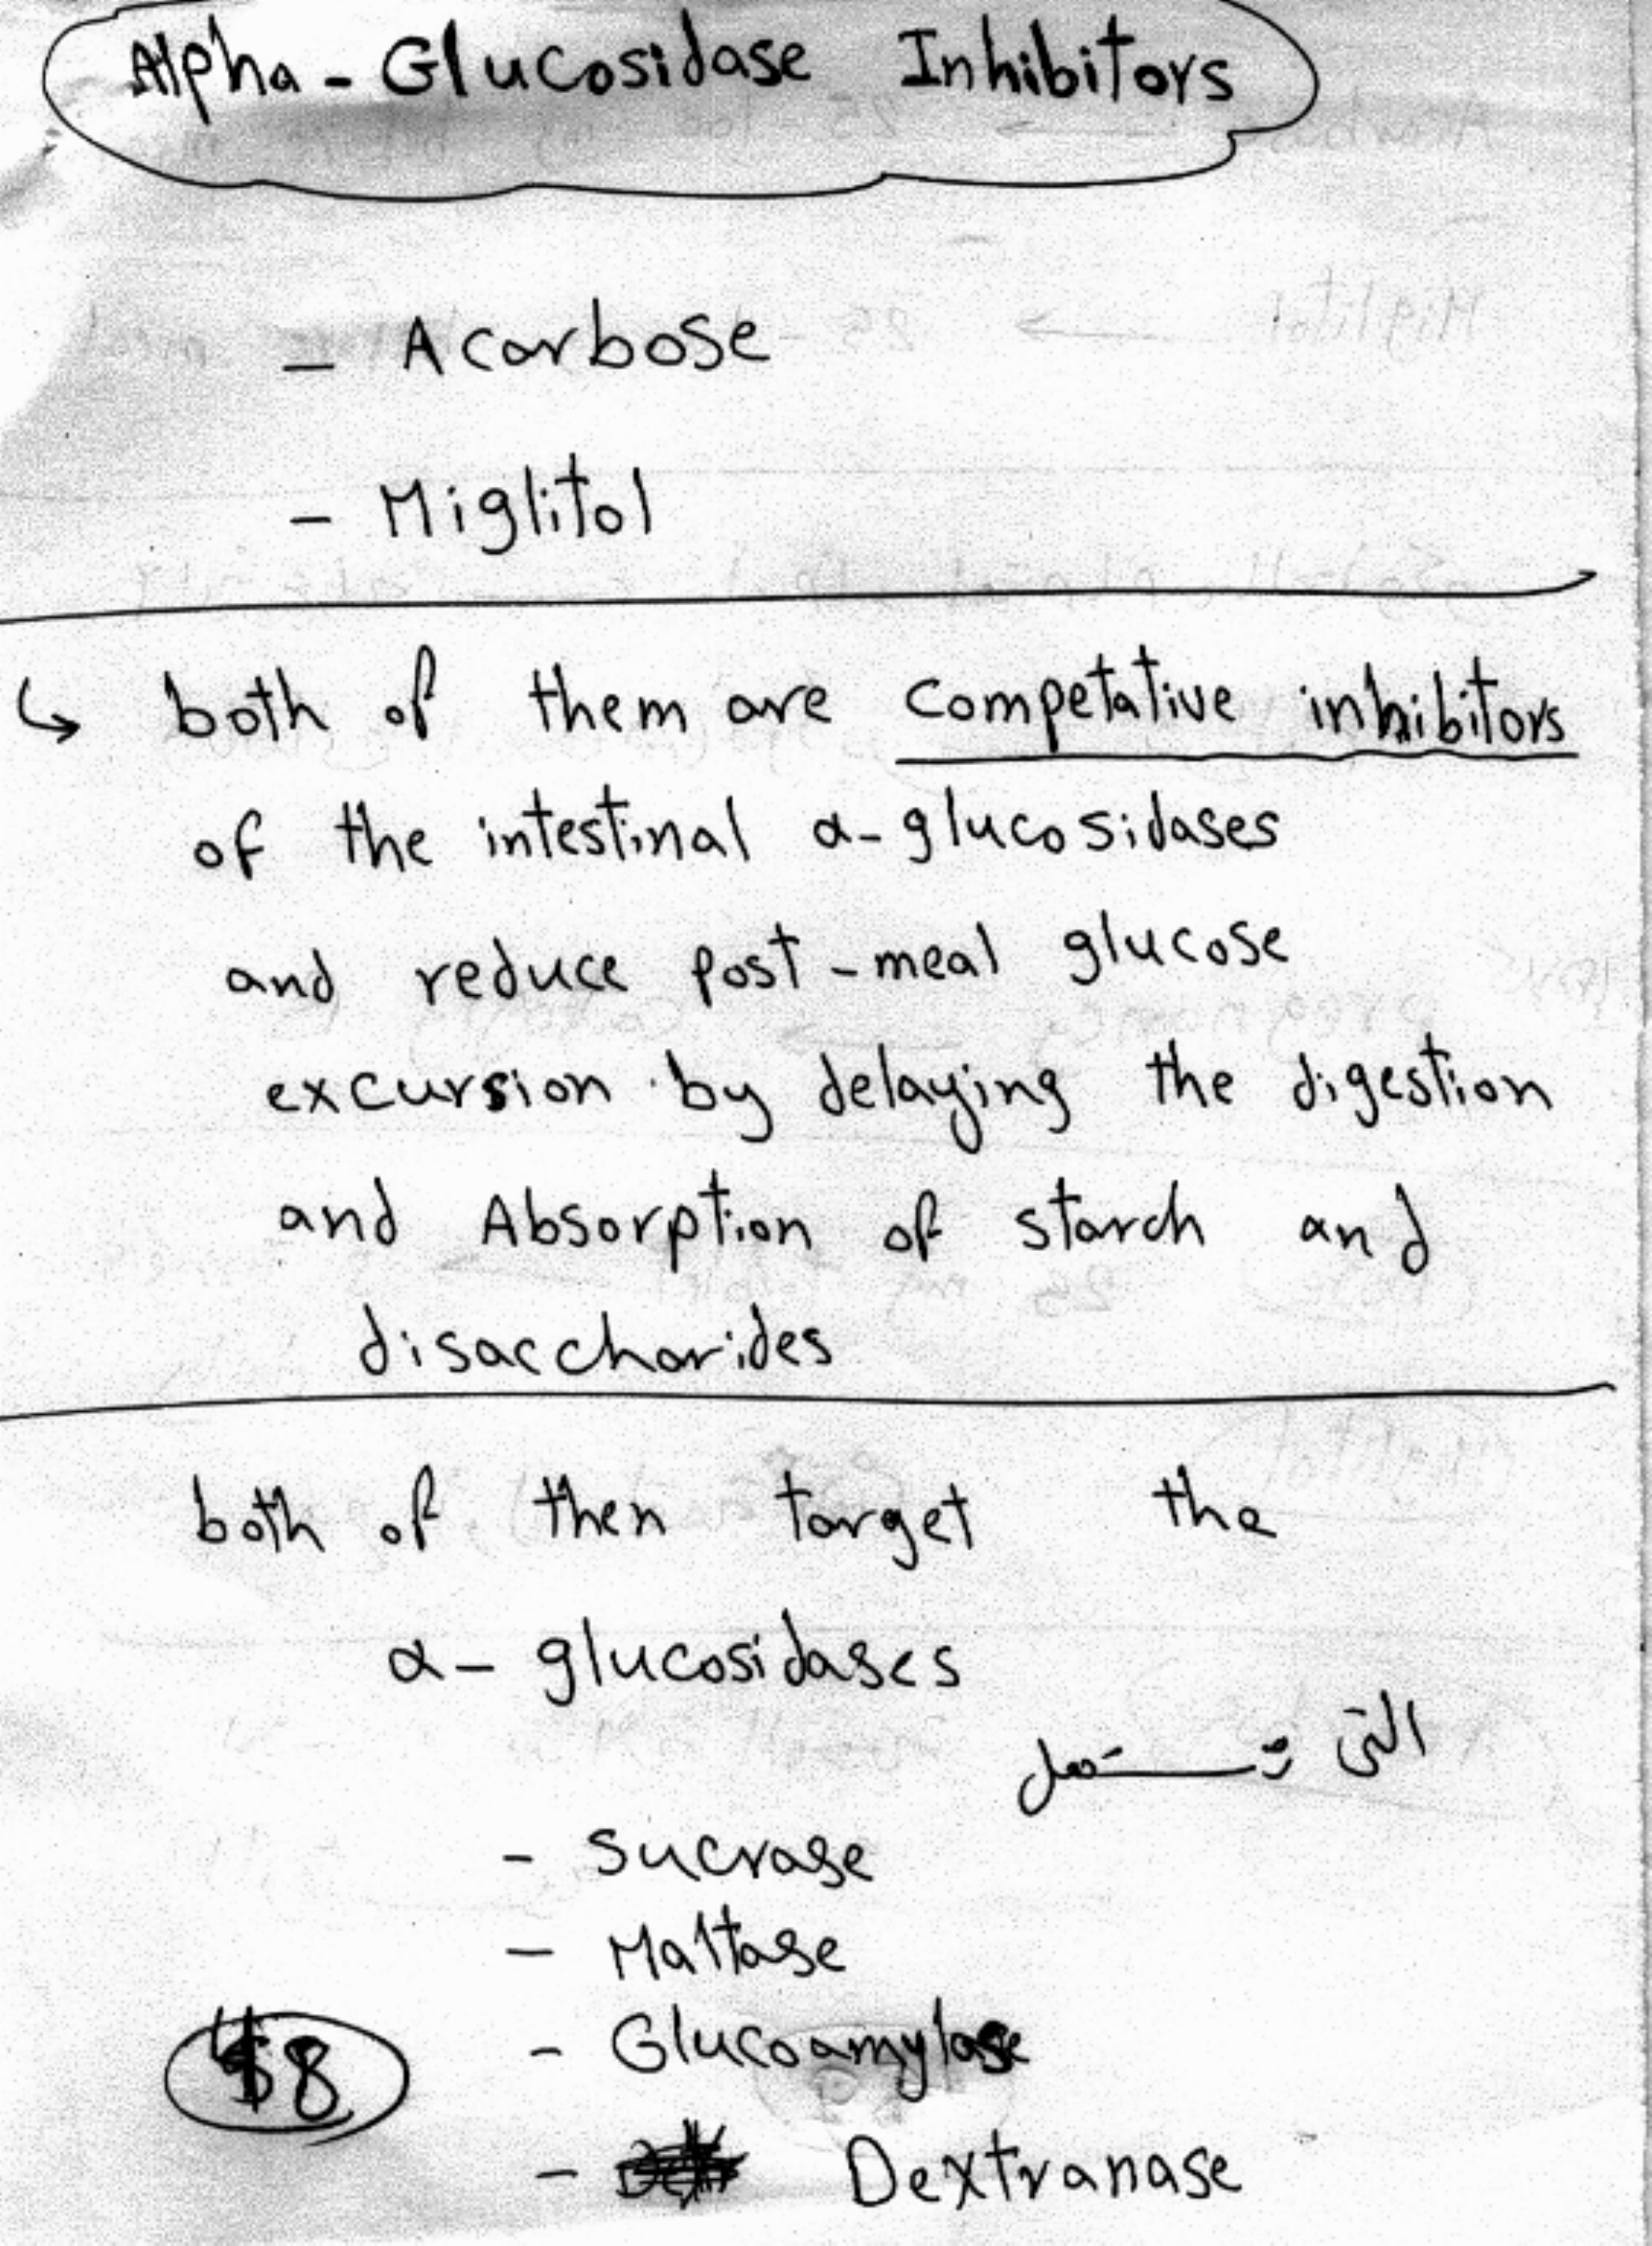 Alpha - Glucosidase Inhibitors
- Acarbose
- Miglitol
↳ both of them are competative inhibitors
of the intestinal α-glucosidases
and reduce post-meal glucose
excursion by delaying the digestion
and Absorption of starch and
disaccharides
both of then target the
α- glucosidases
التى تستمل
- Sucrase
- Maltase
- Glucoamylase
- Dextranase
48